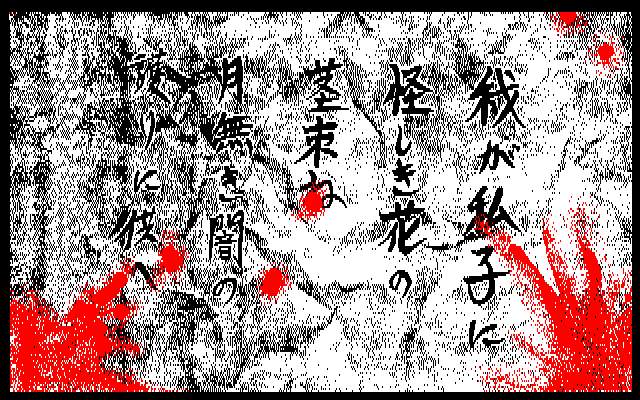 我が私子に
怪しき花の
茎束ね
月無き闇の
りに候へ